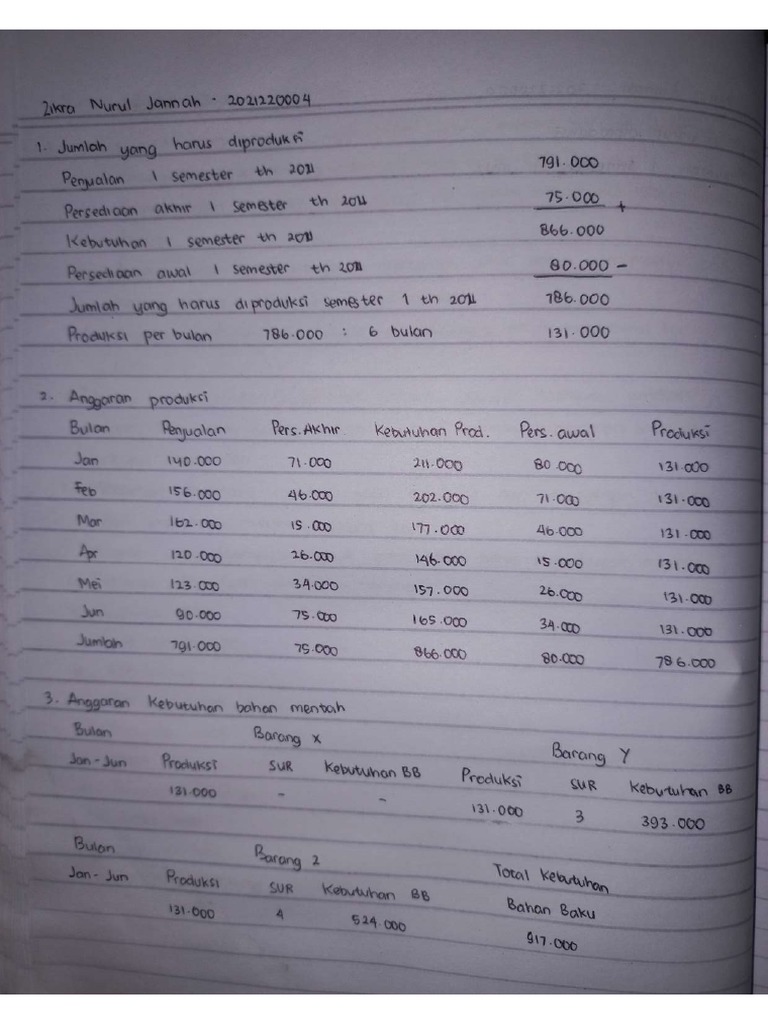 Zikra Nurul Jannah - 2021220004
1. Jumlah yang harus diproduksi
Penjualan 1 semester th 2011 791.000
Persediaan akhir 1 semester th 2011 75.000 +
Kebutuhan 1 semester th 2011 866.000
Persediaan awal 1 semester th 2011 80.000 -
Jumlah yang harus diproduksi semester 1 th 2011 786.000
Produksi per bulan 786.000 : 6 bulan 131.000
2. Anggaran produksi
Bulan Penjualan Pers. Akhir Kebutuhan Prod. Pers. awal Produksi
Jan 140.000 71.000 211.000 80.000 131.000
Feb 156.000 46.000 202.000 71.000 131.000
Mar 162.000 15.000 177.000 46.000 131.000
Apr 120.000 26.000 146.000 15.000 131.000
Mei 123.000 34.000 157.000 26.000 131.000
Jun 90.000 75.000 165.000 34.000 131.000
Jumlah 791.000 75.000 866.000 80.000 786.000
3. Anggaran Kebutuhan bahan mentah
Bulan Barang X Barang Y
Jan - Jun Produksi SUR Kebutuhan BB Produksi SUR Kebutuhan BB
131.000 - - 131.000 3 393.000
Bulan Barang 2 Total Kebutuhan
Jan - Jun Produksi SUR Kebutuhan BB Bahan Baku
131.000 4 524.000 917.000